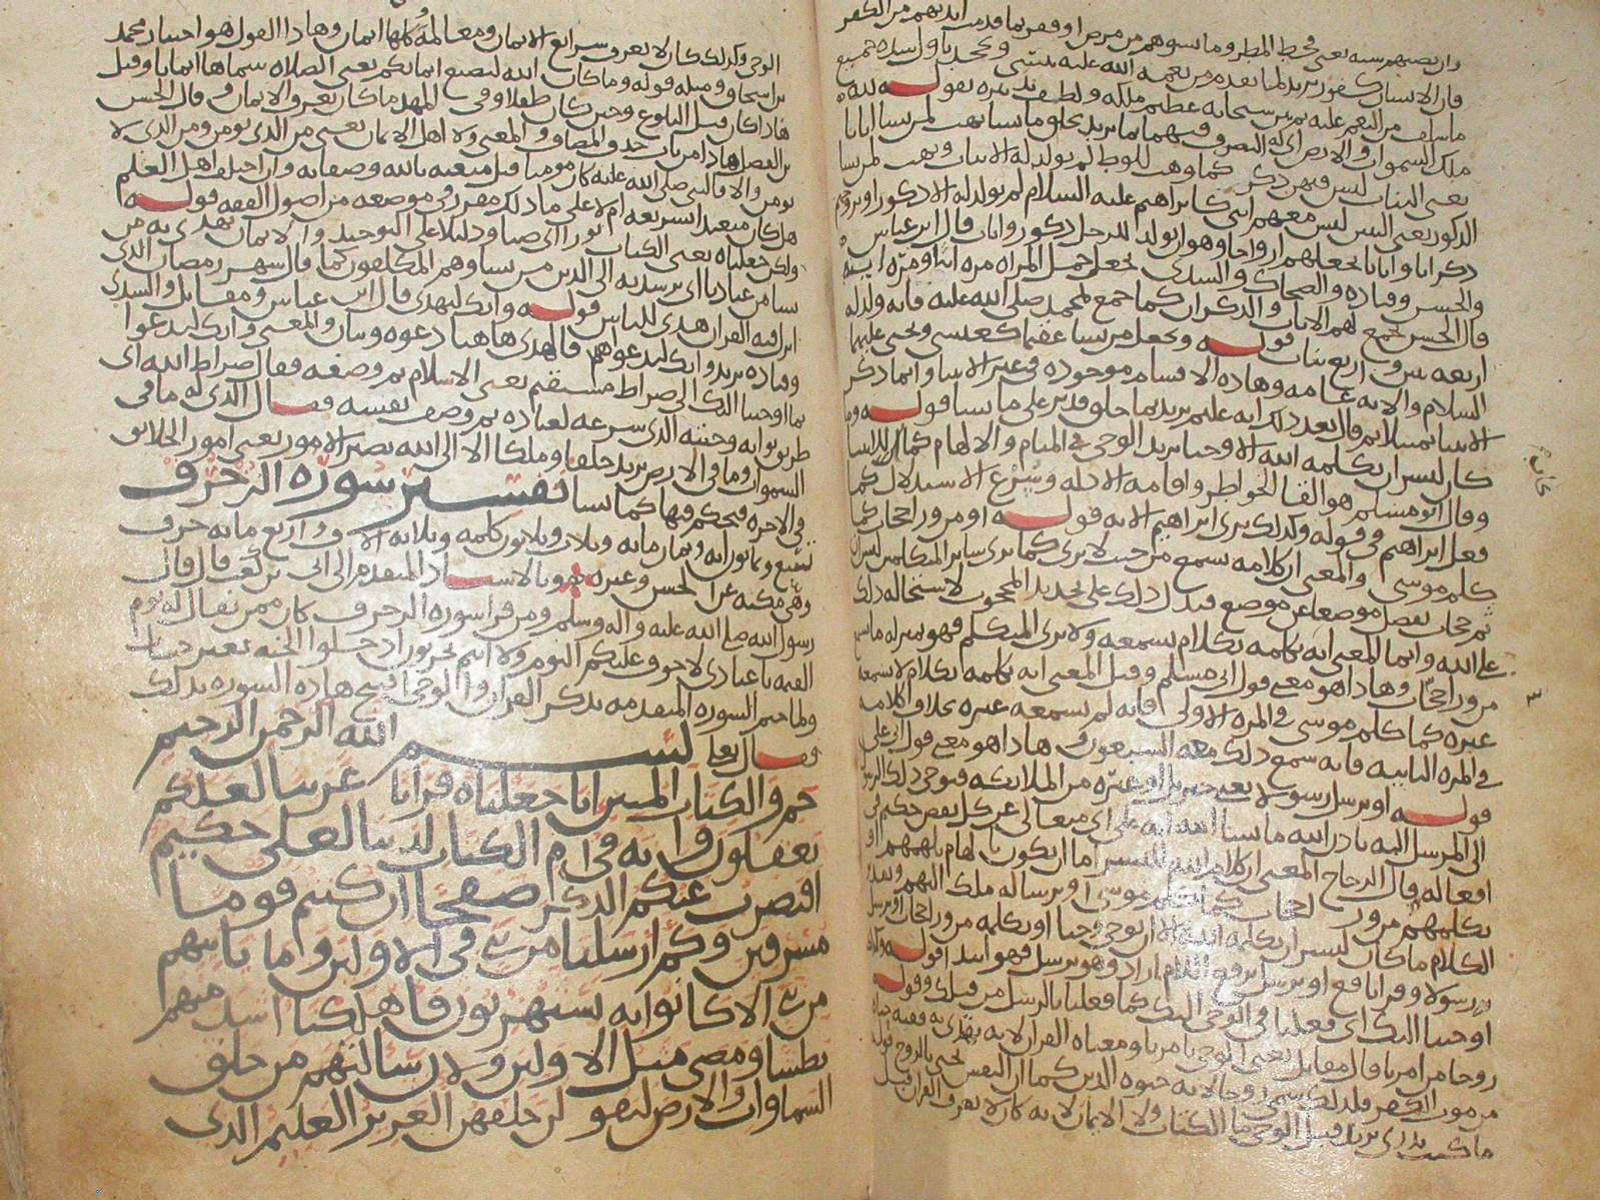 وان تصبهم سيئة يعني قحط المطر وما يسوهم من مرض او فقر بما قدمت ايديهم من الكفر
فان الانسان كفور يريد لما تقدمه من نعمة الله عليه ينسى ويجحد باول شدة جميع
ما سلف من النعم عليه ثم بين سبحانه عظيم ملكه ولطيف تدبيره بقوله لله
ملك السموات والارض اي له التصرف فيهما بما يريد يخلق ما يشا يهب لمن يشا اناثا
يعني البنات ليس فيهن ذكر كما وهب للوط لم يولد له الا بنات ويهب لمن يشا
الذكور يعني البنين ليس معهم انثى كابراهيم عليه السلام لم يولد له الا ذكور او يزوجهم
ذكرانا واناثا يجعلهم ازواجا وهو ان يولد للرجل ذكور واناث قال ابن عباس
والحسن وقتادة والضحاك والسدي يجعل حمل المراة مرة انثى ومرة ابنه
قال الحسن يجمع لهم الاناث والذكران كما جمع لمحمد صلى الله عليه فانه ولد له
اربعة بنين واربع بنات قوله ويجعل من يشا عقيما كعيسى ويحيى عليهما
السلام والاية عامة وهاذه الاقسام موجودة في غير الانبيا وانما ذكر
الانبيا تمثيلا ثم قال بعد ذلك انه عليم يريد بما خلق قدير على ما يشا قوله وما
كان لبشر ان يكلمه الله الا وحيا يريد الوحي في المنام والالهام
وقال ابو مسلم هو القا الخواطر واقامة الادلة وشرع الاستدلال كما
فعل ابراهيم في قوله وكذلك نري ابراهيم الاية قوله او من ورا حجاب كما
كلم موسى والمعنى ان كلامه سمع من حيث لا يرى كما يرى ساير المتكلمين ليس ان
ثم حجاب يفصل موضعا عن موضع فيدل ذلك على تحديد المحجوب لاستحالة ذلك
على الله وانما المعنى انه يكلمه بكلام يسمعه ولا يرى المتكلم فهو بمنزلة ما سمع
من ورا حجاب وهاذا هو معنى قول ابي مسلم وقيل المعنى انه يكلمه بكلام لا يسمعه
غيره كما كلم موسى في المرة الاولى فانه لم يسمعه غيره بخلاف كلامه
في المرة الثانية فانه سمع ذلك معه السبعون هاذا هو معنى قول ابي علي
قوله او يرسل رسولا يعني جبريل او غيره من الملائكة فيوحي ذلك الرسول
الى المرسل اليه باذن الله ما يشا الله انه علي اي متعالي عن كل نقص حكيم في
افعاله قال الزجاج المعنى ان كلام الله للبشر اما ان يكون بالهام يلهمهم او
يكلمهم من ورا حجاب كما كلم موسى او برسالة ملك اليهم وتقدير
الكلام ما كان لبشر ان يكلمه الله الا ان يوحي وحيا او يكلمه من ورا حجاب او يرسل
رسولا وقرا نافع او يرسل برفع اللام اراد وهو يرسل فهو ابتدا قوله وكذلك
اوحينا اليك اي فعلنا في الوحي اليك كما فعلنا بالرسل من قبلك وقوله
روحا من امرنا قال مقاتل يعني الوحي بامرنا ومعناه القران لانه يهتدى به ففيه حياة
من موت الكفر فلذلك سمي روحا لانه حيوة الدين كما ان النفس تحيى بالروح قوله
ما كنت تدري يريد قبل الوحي ما الكتاب ولا الايمان لانه كان لا يعرف القران قبل
الوحي وكذلك كان لا يعرف شرايع الايمان ومعالمه وكلها ايمان وهاذا القول هو اختيار محمد
بن اسحاق ومثله قوله وما كان الله ليضيع ايمانكم يعني الصلاة سماها ايمانا وقيل
هاذا كان قبل البلوغ وحين كان طفلا وفي المهد ما كان يعرف الايمان وقال الحسين
بن الفضل هاذا من باب حذف المضاف والمعنى ولا اهل الايمان يعني من الذي يومن ومن الذي لا
يومن والا فالنبي صلى الله عليه كان مومنا قبل مبعثه بالله وصفاته وان اختلف اهل العلم
هل كان متعبدا بشريعة ام لا على ما ذلك مقرر في موضعه من اصول الفقه قوله
ولكن جعلناه يعني الكتاب نورا اي ضيا ودليلا على التوحيد والايمان نهدي به من
نشا من عبادنا اي نرشد به الى الدين من نشا وهم المكلفون كما قال شهر رمضان الذي
انزل فيه القران هدى للناس قوله وانك لتهدي قال ابن عباس ومقاتل والسدي
وقتادة يريد وانك لتدعواهم فالهدى هاهنا دعوة وبيان والمعنى وانك لتدعوا
بما اوحينا اليك الى صراط مستقيم يعني الاسلام ثم وصفه فقال صراط الله اي
طريق ثوابه وجنته الذي شرعه لعباده ثم وصف نفسه فقال الذي له ما في
السموات وما في الارض يريد خلقا وملكا الا الى الله تصير الامور يعني امور الخلايق
في الاخرة فيحكم فيها كما يشا تفسير سورة الزخرف
تسع وثمانون اية وثمان ماية وثلاث وثلاثون كلمة وثلاثة الاف واربع ماية حرف
وهي مكية عن الحسن وغيره وبالاسناد المتقدم الى ابي بن كعب قال قال
رسول الله صلى الله عليه واله وسلم ومن قرا سورة الزخرف كان ممن يقال له يوم
القيمة يا عبادي لا خوف عليكم اليوم ولا انتم تحزنون ادخلوا الجنة بغير حساب
ولما ختم السورة المتقدمة بذكر القران والوحي افتتح هاذه السورة بذلك
فقال تعالى بسم الله الرحمن الرحيم
حم والكتاب المبين انا جعلناه قرانا عربيا لعلكم
تعقلون وانه في ام الكتاب لدينا لعلي حكيم
افنضرب عنكم الذكر صفحا ان كنتم قوما
مسرفين وكم ارسلنا من نبي في الاولين وما ياتيهم
من نبي الا كانوا به يستهزون فاهلكنا اشد منهم
بطشا ومضى مثل الاولين ولئن سالتهم من خلق
السماوات والارض ليقولن خلقهن العزيز العليم الذي